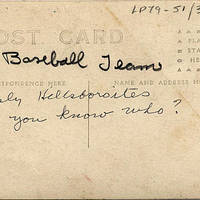 LP79-51/3
OST CARD
Baseball Team
RRESPONDENCE HERE
NAME AND ADDRESS H
ly Hillsboroites
you know who?